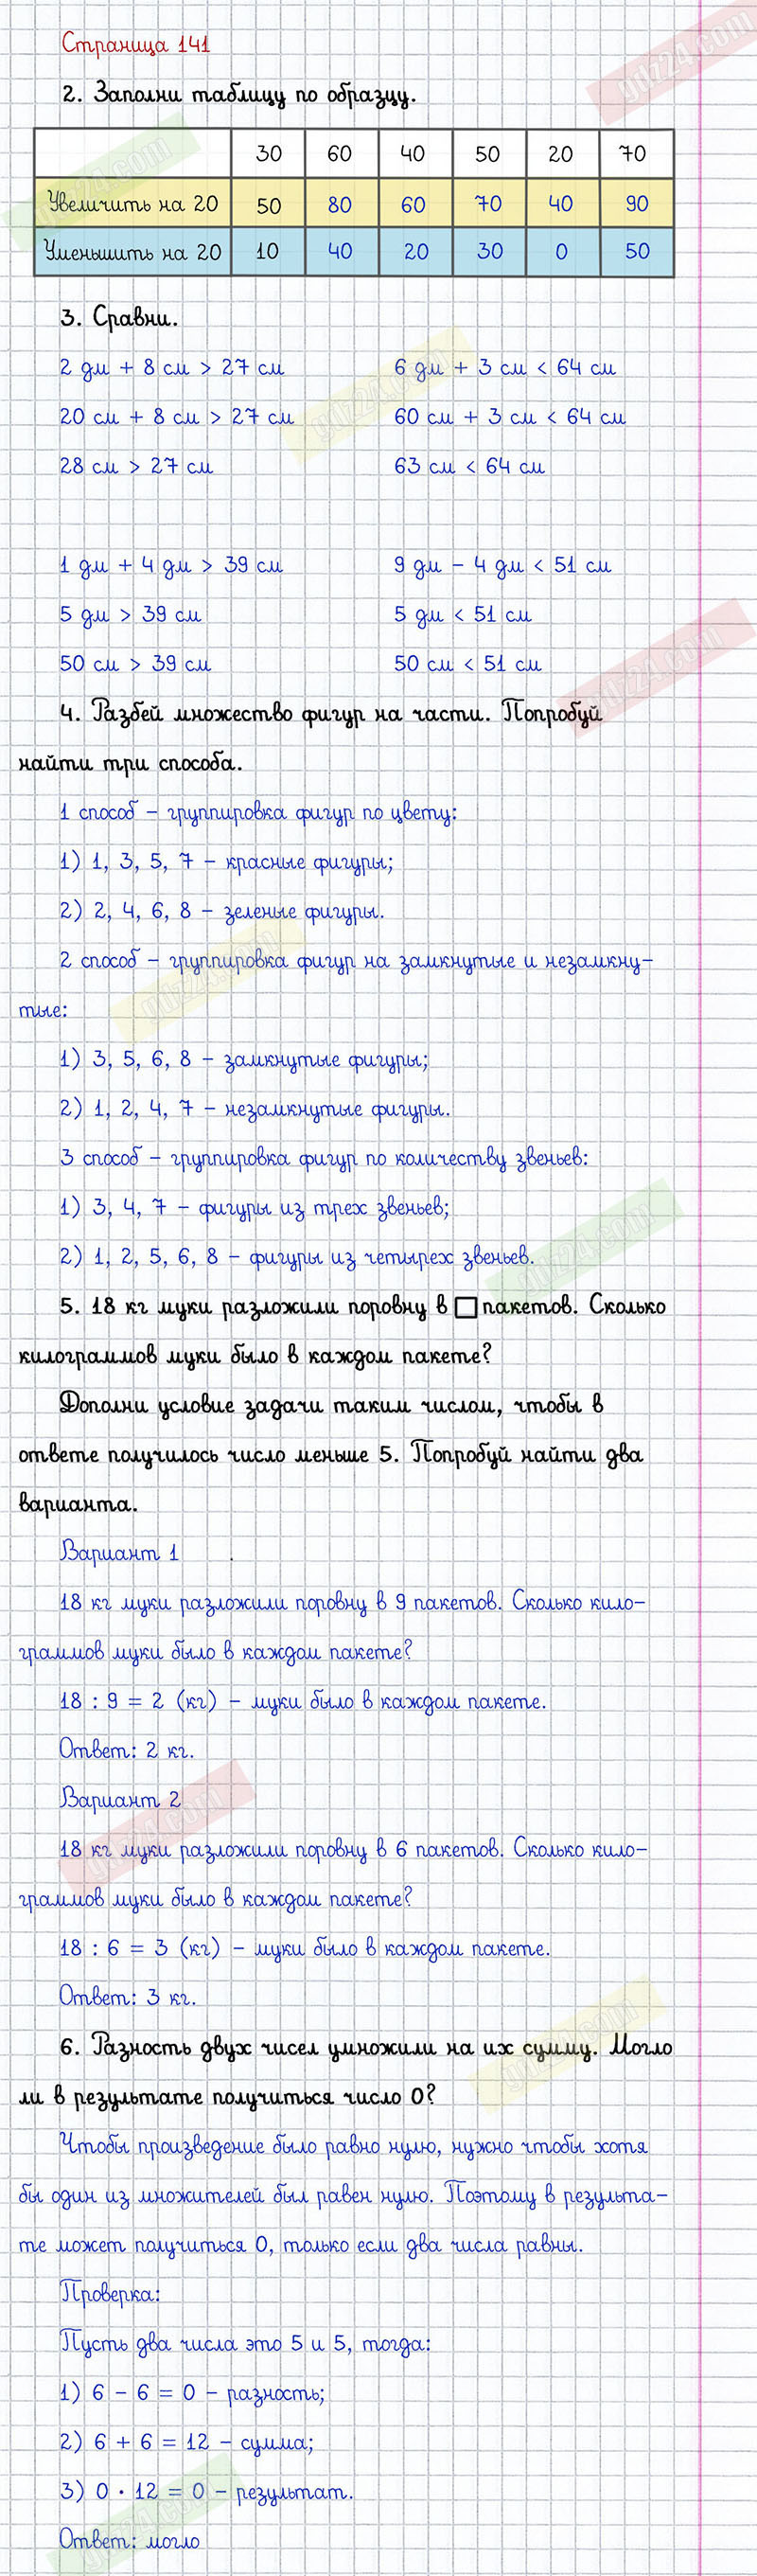 Страница 141
2. Заполни таблицу по образцу.
30 60 40 50 20 70
Увеличить на 20 50 80 60 70 40 90
Уменьшить на 20 10 40 20 30 0 50
3. Сравни.
2 дм + 8 см > 27 см 6 дм + 3 см < 64 см
20 см + 8 см > 27 см 60 см + 3 см < 64 см
28 см > 27 см 63 см < 64 см
1 дм + 4 дм > 39 см 9 дм – 4 дм < 51 см
5 дм > 39 см 5 дм < 51 см
50 см > 39 см 50 см < 51 см
4. Разбей множество фигур на части. Попробуй
найти три способа.
1 способ – группировка фигур по цвету:
1) 1, 3, 5, 7 – красные фигуры;
2) 2, 4, 6, 8 – зеленые фигуры.
2 способ – группировка фигур на замкнутые и незамкну-
тые:
1) 3, 5, 6, 8 – замкнутые фигуры;
2) 1, 2, 4, 7 – незамкнутые фигуры.
3 способ – группировка фигур по количеству звеньев:
1) 3, 4, 7 – фигуры из трех звеньев;
2) 1, 2, 5, 6, 8 – фигуры из четырех звеньев.
5. 18 кг муки разложили поровну в □ пакетов. Сколько
килограммов муки было в каждом пакете?
Дополни условие задачи таким числом, чтобы в
ответе получилось число меньше 5. Попробуй найти два
варианта.
Вариант 1 .
18 кг муки разложили поровну в 9 пакетов. Сколько кило-
граммов муки было в каждом пакете?
18 : 9 = 2 (кг) – муки было в каждом пакете.
Ответ: 2 кг.
Вариант 2
18 кг муки разложили поровну в 6 пакетов. Сколько кило-
граммов муки было в каждом пакете?
18 : 6 = 3 (кг) – муки было в каждом пакете.
Ответ: 3 кг.
6. Разность двух чисел умножили на их сумму. Могло
ли в результате получиться число 0?
Чтобы произведение было равно нулю, нужно чтобы хотя
бы один из множителей был равен нулю. Поэтому в результа-
те может получиться 0, только если два числа равны.
Проверка:
Пусть два числа это 5 и 5, тогда:
1) 6 – 6 = 0 – разность;
2) 6 + 6 = 12 – сумма;
3) 0 · 12 = 0 – результат.
Ответ: могло
gdz24.com
gdz24.com
gdz24.com
gdz24.com
gdz24.com
gdz24.com
gdz24.com
gdz24.com
gdz24.com